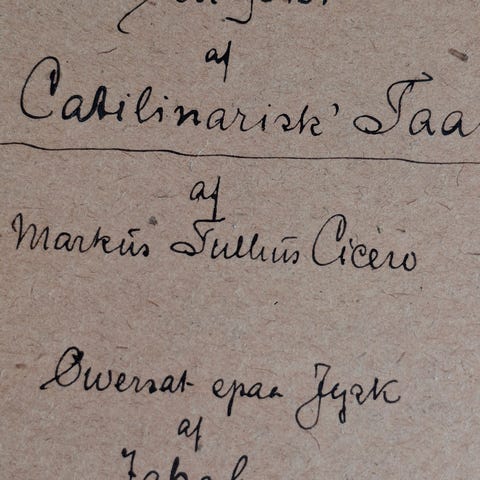 af
Catilinarisk' Taa
af
Markus Tullius Cicero
Øwersat epaa Jysk
af